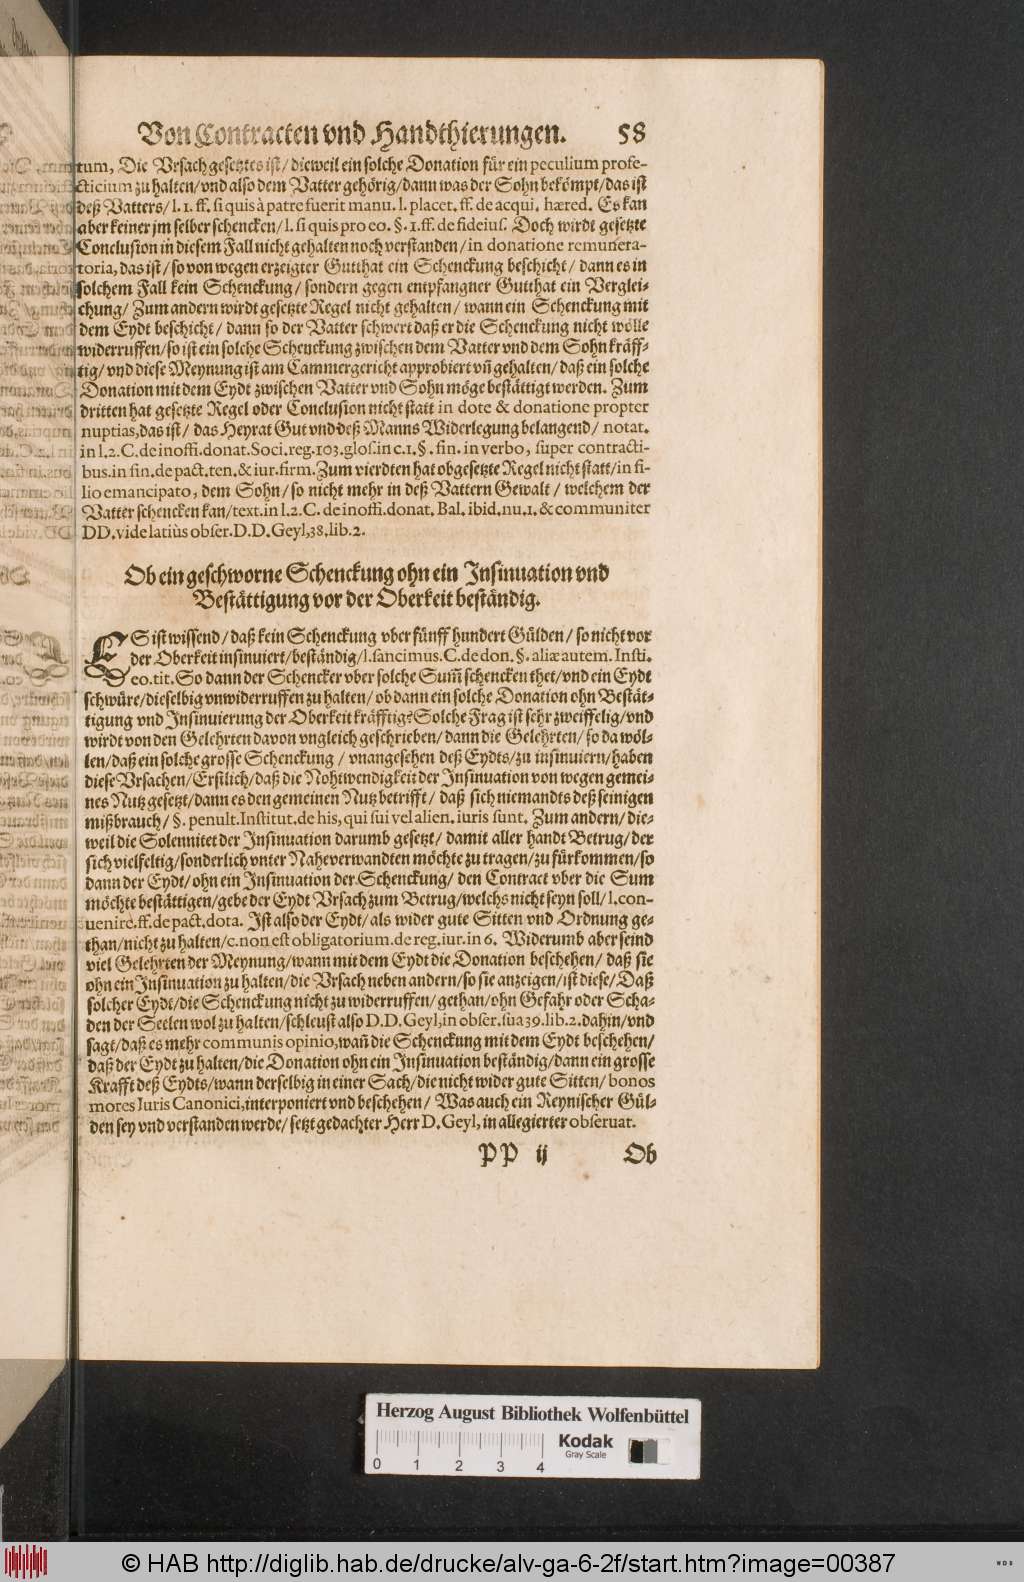 Von Contracten vnd Handthierungen. 58
tum, Die Vrsach gesetztes ist/ dieweil ein solche Donation für ein peculium profe-
cticium zu halten/vnd also dem Vatter gehörig/dann was der Sohn bekömpt/das ist
deß Vatters/ l. 1. ff. si quis à patre fuerit manu. l. placet. ff. de acqui. hæred. Es kan
aber keiner jm selber schencken/ l. si quis pro eo. §. 1. ff. de fideius. Doch wirdt gesetzte
Conclusion in diesem Fall nicht gehalten noch verstanden/ in donatione remunera-
toria, das ist/ so von wegen erzeigter Gutthat ein Schenckung beschicht/ dann es in
solchem Fall kein Schenckung/ sondern gegen entpfangner Gutthat ein Verglei-
chung/ Zum andern wirdt gesetzte Regel nicht gehalten/ wann ein Schenckung mit
dem Eydt beschicht/ dann so der Vatter schwert daß er die Schenckung nicht wölle
widerruffen/so ist ein solche Schenckung zwischen dem Vatter vnd dem Sohn kräff-
tig/ vnd diese Meynung ist am Cammergericht approbiert vñ gehalten/ daß ein solche
Donation mit dem Eydt zwischen Vatter vnd Sohn möge bestättigt werden. Zum
dritten hat gesetzte Regel oder Conclusion nicht statt in dote & donatione propter
nuptias, das ist/ das Heyrat Gut vnd deß Manns Widerlegung belangend/ notat.
in l. 2. C. de inoffi. donat. Soci. reg. 103. glos. in c. 1. §. fin. in verbo, super contracti-
bus. in fin. de pact. ten. & iur. firm. Zum vierdten hat obgesetzte Regel nicht statt/ in fi-
lio emancipato, dem Sohn/ so nicht mehr in deß Vattern Gewalt/ welchem der
Vatter schencken kan/ text. in l. 2. C. de inoffi. donat. Bal. ibid. nu. 1. & communiter
DD. vide latiùs obser. D. D. Geyl, 38. lib. 2.
Ob ein geschworne Schenckung ohn ein Insinuation vnd
Bestättigung vor der Oberkeit beständig.
ES ist wissend/ daß kein Schenckung vber fünff hundert Gülden/ so nicht vor
der Oberkeit insinuiert/beständig/ l. sancimus. C. de don. §. aliæ autem. Insti.
eo. tit. So dann der Schencker vber solche Sum̃ schencken thet/ vnd ein Eydt
schwüre/dieselbig vnwiderruffen zu halten/ ob dann ein solche Donation ohn Bestät-
tigung vnd Insinuierung der Oberkeit kräfftig? Solche Frag ist sehr zweiffelig/ vnd
wirdt von den Gelehrten davon vngleich geschrieben/ dann die Gelehrten/ so da wöl-
len/ daß ein solche grosse Schenckung/ vnangesehen deß Eydts/ zu insinuiern/ haben
diese Vrsachen/ Erstlich/ daß die Nohtwendigkeit der Insinuation von wegen gemei-
nes Nutz gesetzt/ dann es den gemeinen Nutz betrifft/ daß sich niemandts deß seinigen
mißbrauch/ §. penult. Institut. de his, qui sui vel alien. iuris sunt. Zum andern/ die-
weil die Solennitet der Insinuation darumb gesetzt/ damit aller handt Betrug/ der
sich vielfeltig/sonderlich vnter Naheverwandten möchte zu tragen/ zu fürkommen/ so
dann der Eydt/ ohn ein Insinuation der Schenckung/ den Contract vber die Sum
möchte bestättigen/ gebe der Eydt Vrsach zum Betrug/ welchs nicht seyn soll/ l. con-
uenire. ff. de pact. dota. Ist also der Eydt/ als wider gute Sitten vnd Ordnung ge-
than/ nicht zu halten/ c. non est obligatorium. de reg. iur. in 6. Widerumb aber seind
viel Gelehrten der Meynung/ wann mit dem Eydt die Donation beschehen/ daß sie
ohn ein Insinuation zu halten/ die Vrsach neben andern/ so sie anzeigen/ ist diese/ Daß
solcher Eydt/ die Schenckung nicht zu widerruffen/ gethan/ ohn Gefahr oder Scha-
den der Seelen wol zu halten/ schleust also D. D. Geyl, in obser. sua 39. lib. 2. dahin/ vnd
sagt/ daß es mehr communis opinio, wañ die Schenckung mit dem Eydt beschehen/
daß der Eydt zu halten/ die Donation ohn ein Insinuation beständig/ dann ein grosse
Krafft deß Eydts/ wann derselbig in einer Sach/ die nicht wider gute Sitten/ bonos
mores Iuris Canonici, interponiert vnd beschehen/ Was auch ein Reynischer Gül-
den sey vnd verstanden werde/ setzt gedachter Herr D. Geyl, in allegierter obseruat.
PP ij Ob
Herzog August Bibliothek Wolfenbüttel
0 1 2 3 4
Kodak
Gray Scale
© HAB http://diglib.hab.de/drucke/alv-ga-6-2f/start.htm?image=00387